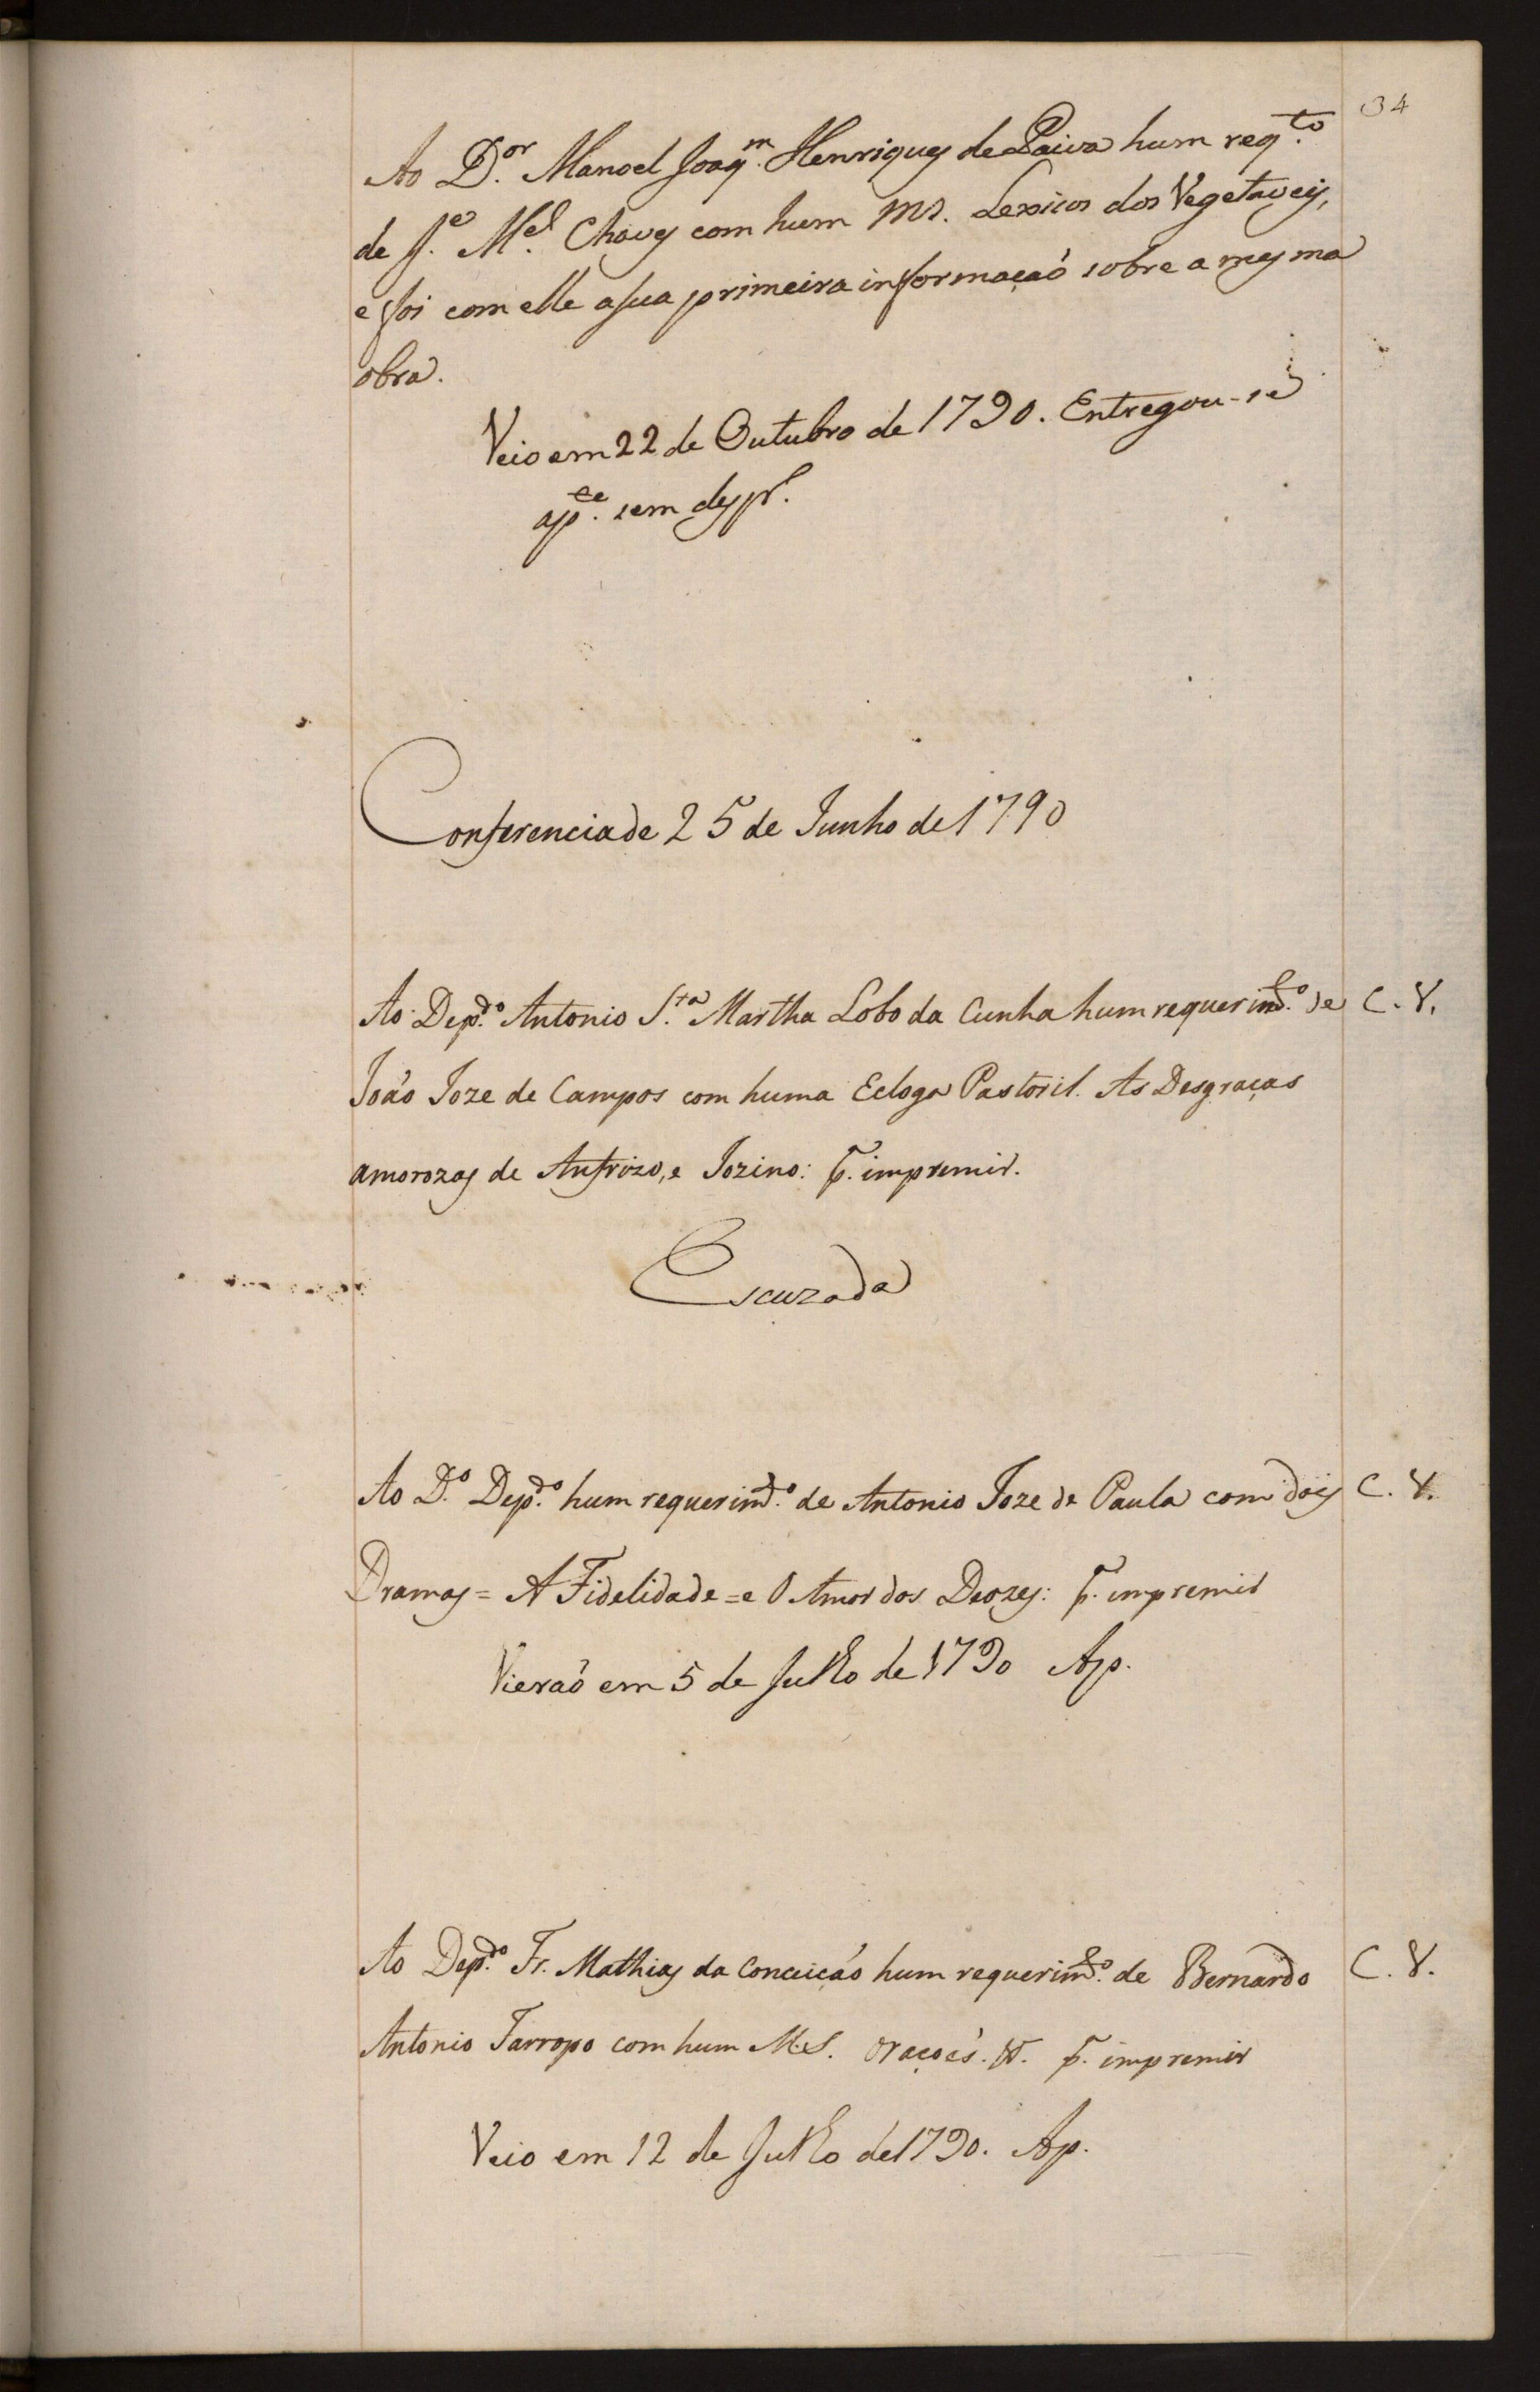 34
Ao D.or Manoel Joaq.m Henriques de Paiva hum req.to
de J.e M.el Chaves com hum MS. Lexicos dos Vegetaveis,
e foi com elle a sua primeira informaçaõ sobre a mesma
obra.
Veio em 22 de Outubro de 1790. Entregou-se
a p.te sem desp.
Conferencia de 25 de Junho de 1790
Ao Dep.do Antonio S.ta Martha Lobo da Cunha hum requerim.to de C. V.
João Joze de Campos com huma Ecloga Pastoril. As Desgraças
amorozas de Anfrizo, e Jozino: p. impremir.
Escuzada
Ao D.o Dep.do hum requerim.to de Antonio Joze de Paula com dois C. V.
Dramas = A Fidelidade = e O Amor dos Deozes: p. impremir
Vieraõ em 5 de Julho de 1790 Ap.
Ao Dep.do Fr. Mathias da Conceicão hum requerim.to de Bernardo C. V.
Antonio Farropo com hum M.S. Oraçoẽs. &. p. impremir
Veio em 12 de Julho de 1790. Ap.